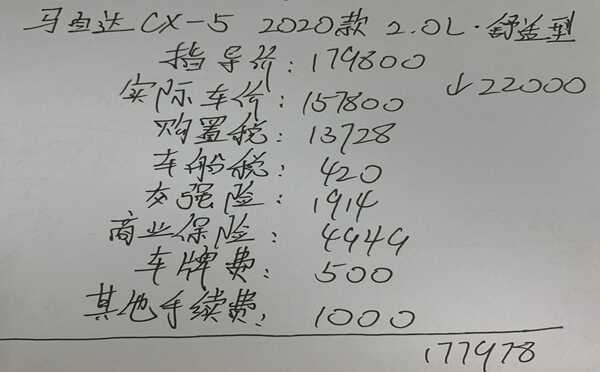 马自达 CX-5 2020款 2.0L·舒适型
指导价: 179800
↓22000
实际车价: 157800
购置税: 13728
车船税: 420
交强险: 1914
商业保险: 4949
车牌费: 500
其他手续费: 1000
177978